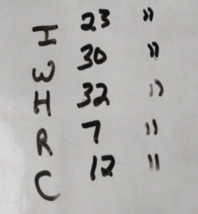 I 23 "
W 30 "
H 32 "
R 7 "
C 12 "